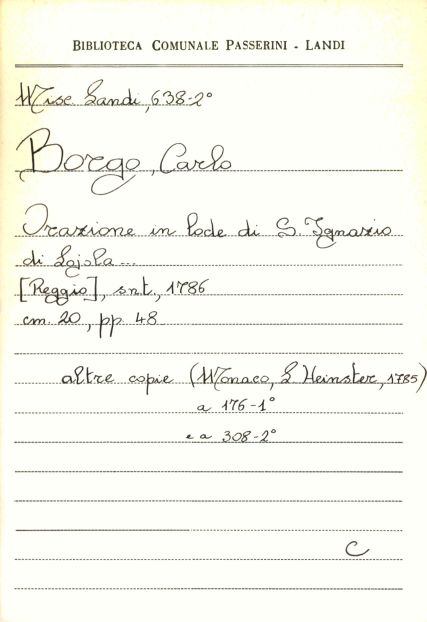 BIBLIOTECA COMUNALE PASSERINI - LANDI
Misc. Landi, 638-2°
Borgo, Carlo
Orazione in lode di S. Ignazio
di Lojola...
[Reggio], snt, 1786
cm. 20, pp. 48
altre copie (Monaco, L Heinster, 1785)
a 176-1°
e a 308-2°
C